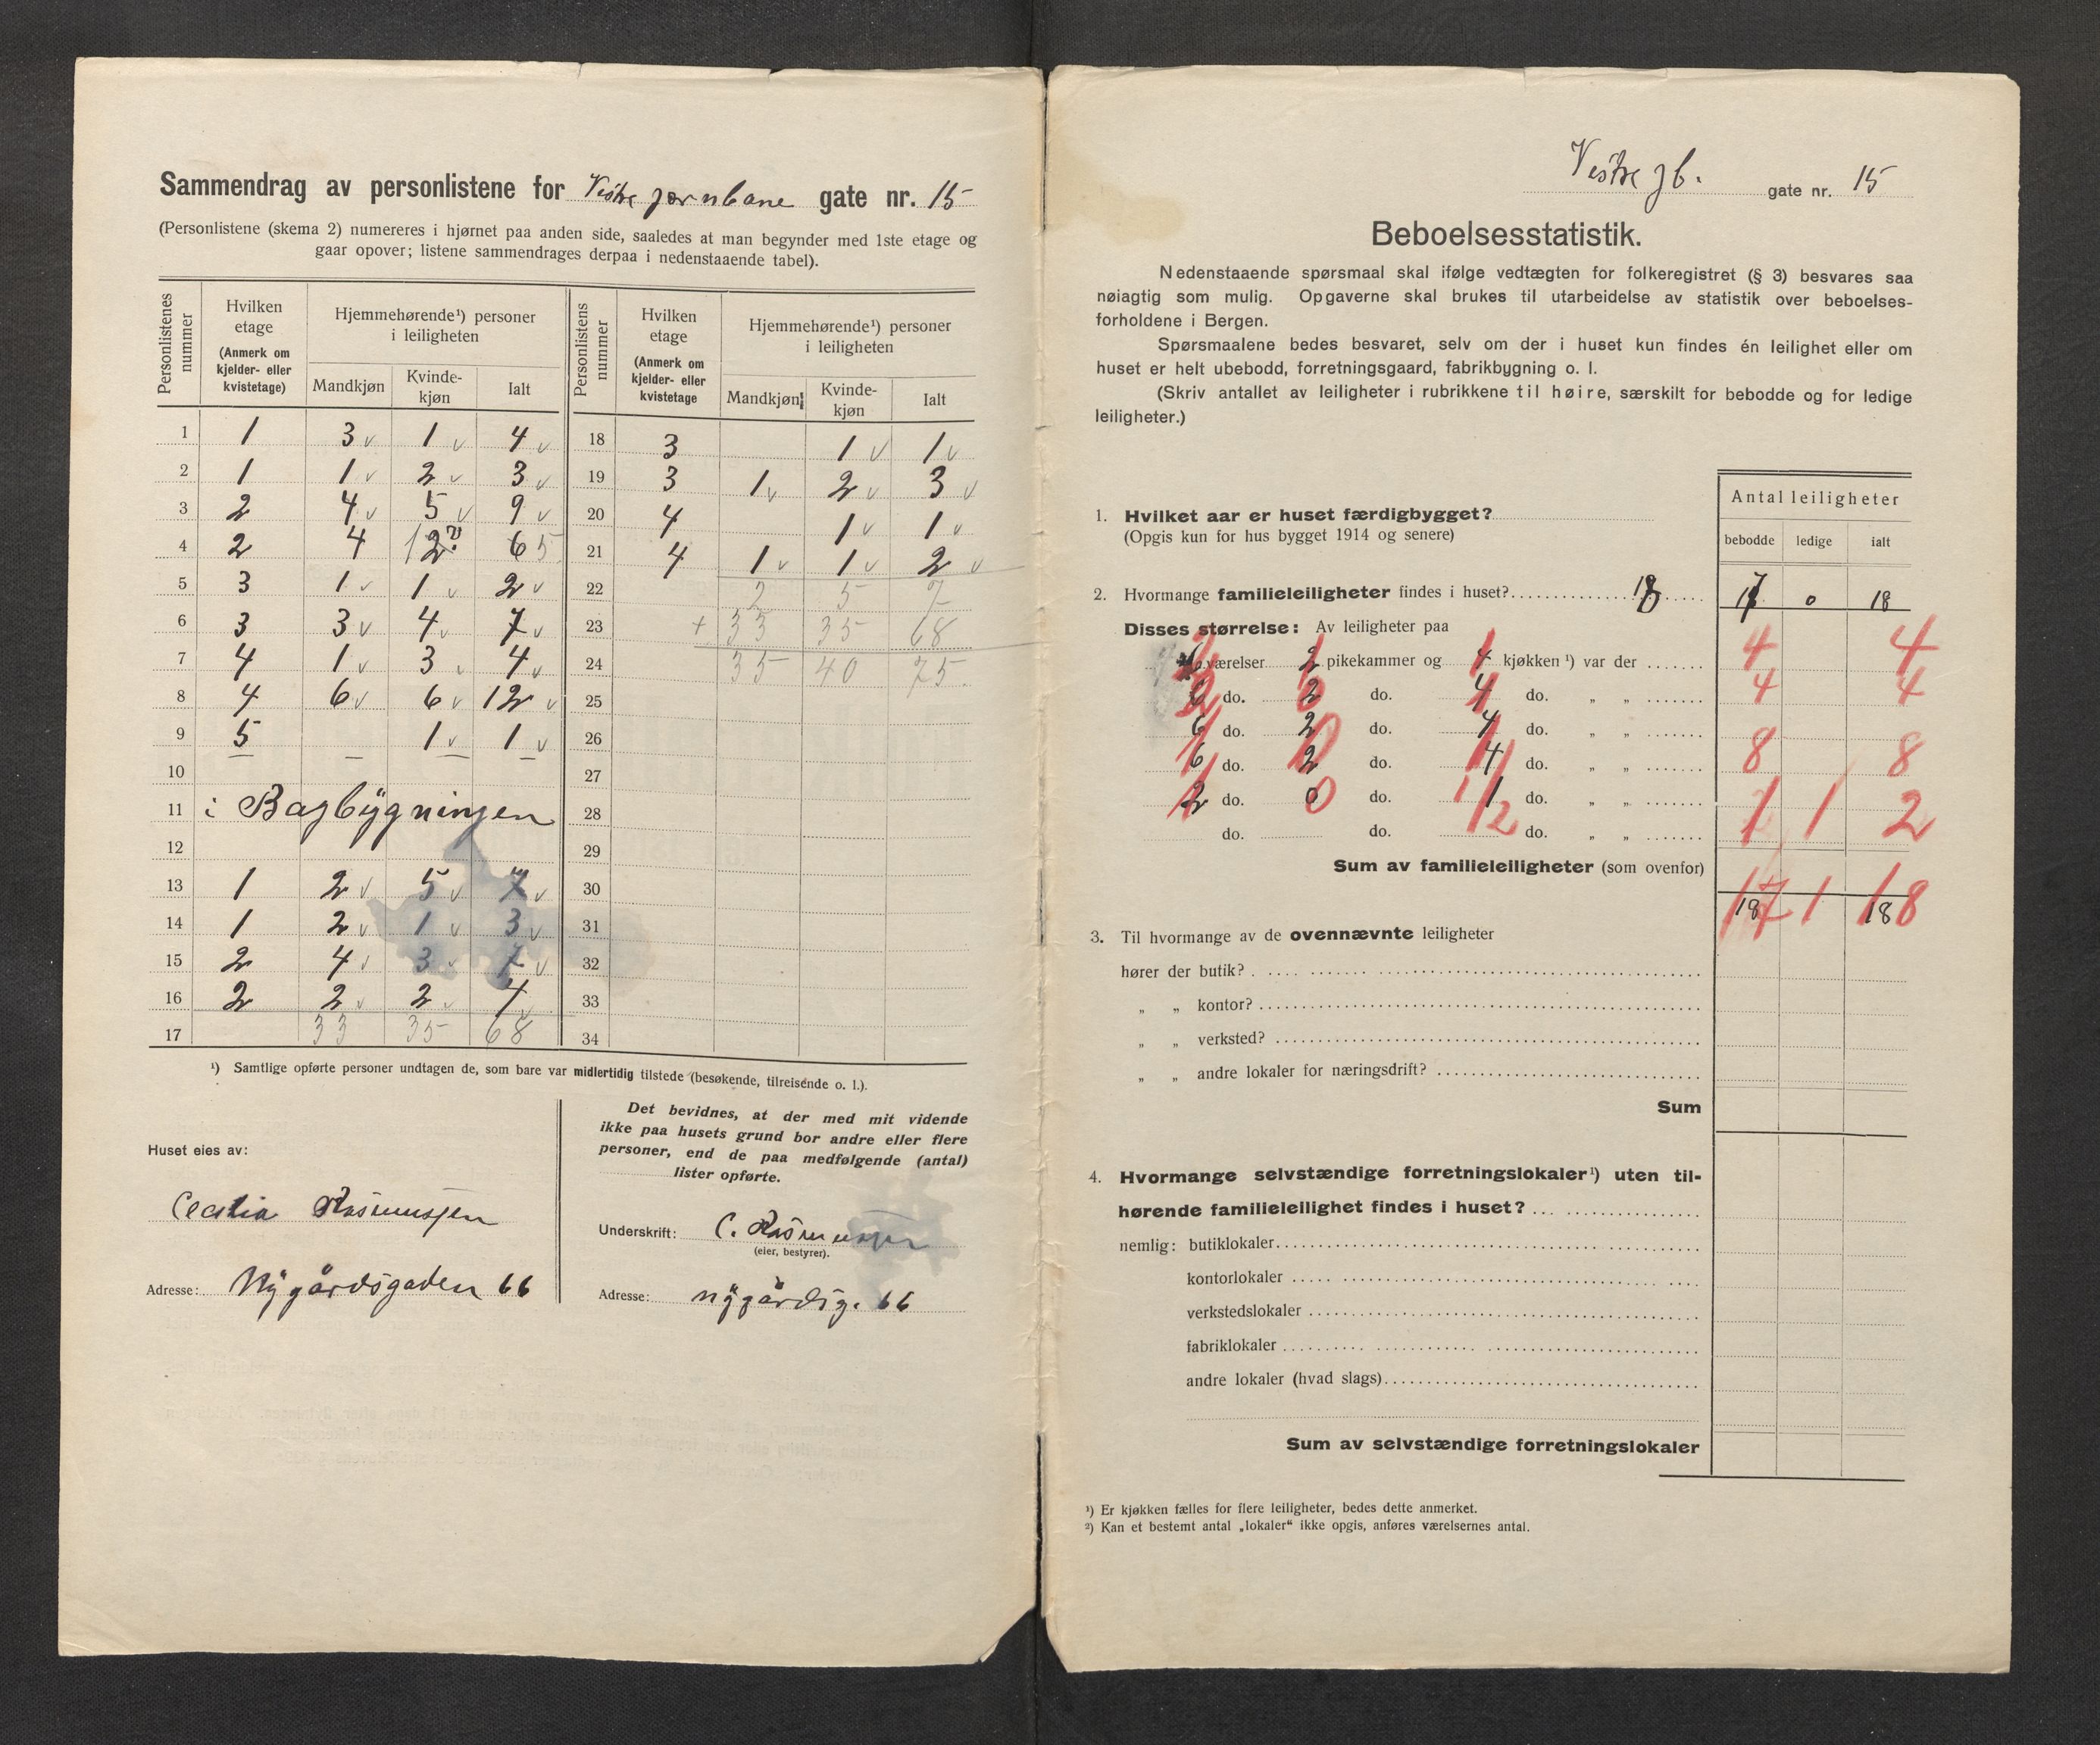 Sammendrag av personlistene for Vestre jernbane gate nr. 15
(Personlistene (skema 2) numereres i hjørnet paa anden side, saaledes at man begynder med 1ste etage og
gaar opover; listene sammendrages derpaa i nedenstaaende tabel).
Personlistenes nummer | Hvilken etage (Anmerk om kjelder- eller kvistetage) | Hjemmehørende¹) personer i leiligheten | Mandkjøn | Kvinde-kjøn | Ialt
1 1 3 v 1 v 4 v
2 1 1 v 2 v 3 v
3 2 4 v 5 v 9 v
4 2 4 1 2? 6 5
5 3 1 v 1 v 2 v
6 3 3 v 4 v 7 v
7 4 1 v 3 v 4 v
8 4 6 v 6 v 12 v
9 5 – 1 v 1 v
10
11 i Bagbÿgningen
12
13 1 2 v 5 v 7 v
14 1 2 v 1 v 3 v
15 2 4 v 3 v 7 v
16 2 2 v 2 v 4 v
17 33 35 68
Personlistens nummer | Hvilken etage (Anmerk om kjelder- eller kvistetage | Hjemmehørende¹) personer i leiligheten | Mandkjøn | Kvinde-kjøn | Ialt
18 3 1 v 1 v
19 3 1 v 2 v 3 v
20 4 1 v 1 v
21 4 1 v 1 v 2 v
22 2 5 7
23 + 33 35 68
24 35 40 75
25
26
27
28
29
30
31
32
33
34
¹) Samtlige opførte personer undtagen de, som bare var midlertidig tilstede (besøkende, tilreisende o. l.).
Huset eies av:
Cecilia Rasmussen
Adresse: Nÿgårdsgaden 66
Det bevidnes, at der med mit vidende
ikke paa husets grund bor andre eller flere
personer, end de paa medfølgende (antal)
lister opførte.
Underskrift: C. Rasmussen
(eier, bestyrer).
Adresse: nÿgårdsg. 66
Vestre jb. gate nr. 15
Beboelsesstatistik.
Nedenstaaende spørsmaal skal ifølge vedtægten for folkeregistret (§ 3) besvares saa
nøiagtig som mulig. Opgaverne skal brukes til utarbeidelse av statistik over beboelses-
forholdene i Bergen.
Spørsmaalene bedes besvaret, selv om der i huset kun findes én leilighet eller om
huset er helt ubebodd, forretningsgaard, fabrikbygning o. l.
(Skriv antallet av leiligheter i rubrikkene til høire, særskilt for bebodde og for ledige
leiligheter.)
Antal leiligheter
bebodde ledige ialt
1. Hvilket aar er huset færdigbygget?
(Opgis kun for hus bygget 1914 og senere)
2. Hvormange familieleiligheter findes i huset? 18 17 0 18
Disses størrelse: Av leiligheter paa
2 værelser 1 pikekammer og 1 kjøkken ¹) var der 4 4
2 do. 0 do. 1 do. „ „ 4 4
1 do. 0 do. 1 do. „ „ 8 8
6 do. 2 do. 4 do. „ „
1 do. 0 do. 1/2 do. „ „ 1 1 2
do. do. do. „ „
Sum av familieleiligheter (som ovenfor) 17 1 18
18 18
3. Til hvormange av de ovennævnte leiligheter
hører der butik?
„ „ kontor?
„ „ verksted?
„ „ andre lokaler for næringsdrift?
Sum
4. Hvormange selvstændige forretningslokaler¹) uten til-
hørende familieleilighet findes i huset?
nemlig: butiklokaler
kontorlokaler
verkstedslokaler
fabriklokaler
andre lokaler (hvad slags)
Sum av selvstændige forretningslokaler
¹) Er kjøkken fælles for flere leiligheter, bedes dette anmerket.
²) Kan et bestemt antal „lokaler“ ikke opgis, anføres værelsernes antal.